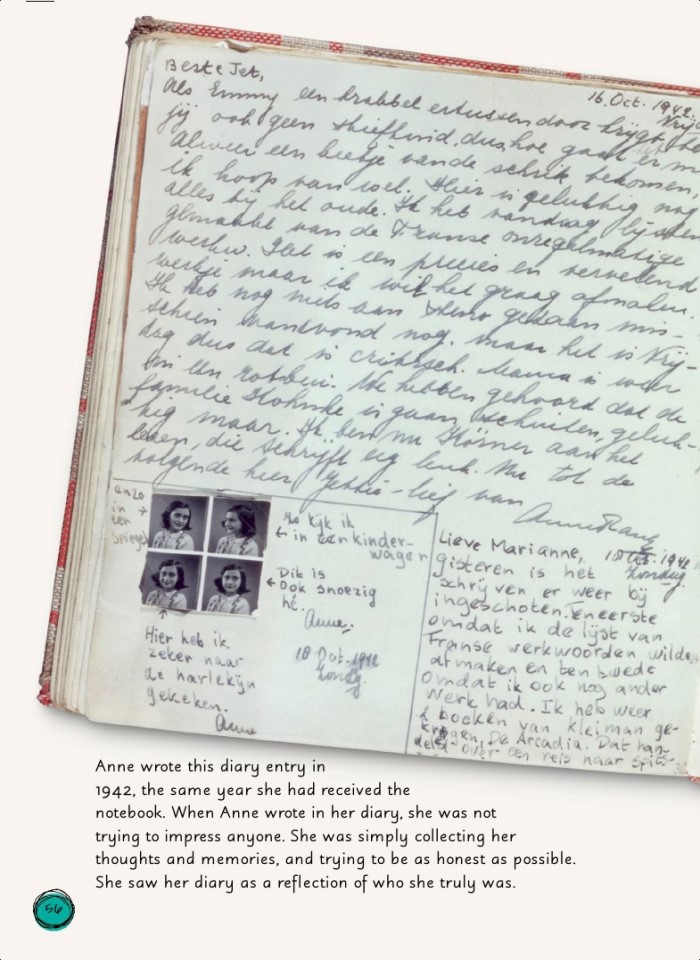 Beste Jet,
16. Oct. 1942.
Als Emmy een krabbel ertussendoor krijgt, ben
jij ook geen stiefkind, dus hoe gaat er m
Alweer een beetje van de schrik bekomen,
ik hoop van wel. Hier is gelukkig nog
alles bij het oude. Ik heb vandaag lijsten
gemaakt van de Franse onregelmatige
werkw. Het is een precies en vervelend
werkje maar ik wil het graag afmaken.
Ik heb nog niets aan steno gedaan mis-
schien vanavond nog, maar het is Vrij-
dag dus dat is critisch. Mama is weer
in een rotbui. We hebben gehoord dat de
familie is gaan schuilen, geluk-
kig maar. Ik ben nu Körner aan het
lezen, die schrijft erg leuk. Nu tot de
volgende keer Jettie-lief van
Anne Frank
anzo
in
een
spiegel
Zo kijk ik
in een kinder-
wagen
Dit is
Ook snoezig
hè.
Anne.
18 Oct. 1942
Zondag.
Hier heb ik
zeker naar
de harlekijn
gekeken.
Anne
Lieve Marianne,
18 Oct. 1942
Zondag.
gisteren is het
schrijven er weer bij
ingeschoten. Eneerste
omdat ik de lijst van
Franse werkwoorden wilde
afmaken en ten twede
omdat ik ook nog ander
werk had. Ik heb weer
2 boeken van Kleiman ge-
kregen, De Arcadia. Dat han-
delt over een reis naar Spits-
Anne wrote this diary entry in
1942, the same year she had received the
notebook. When Anne wrote in her diary, she was not
trying to impress anyone. She was simply collecting her
thoughts and memories, and trying to be as honest as possible.
She saw her diary as a reflection of who she truly was.
56